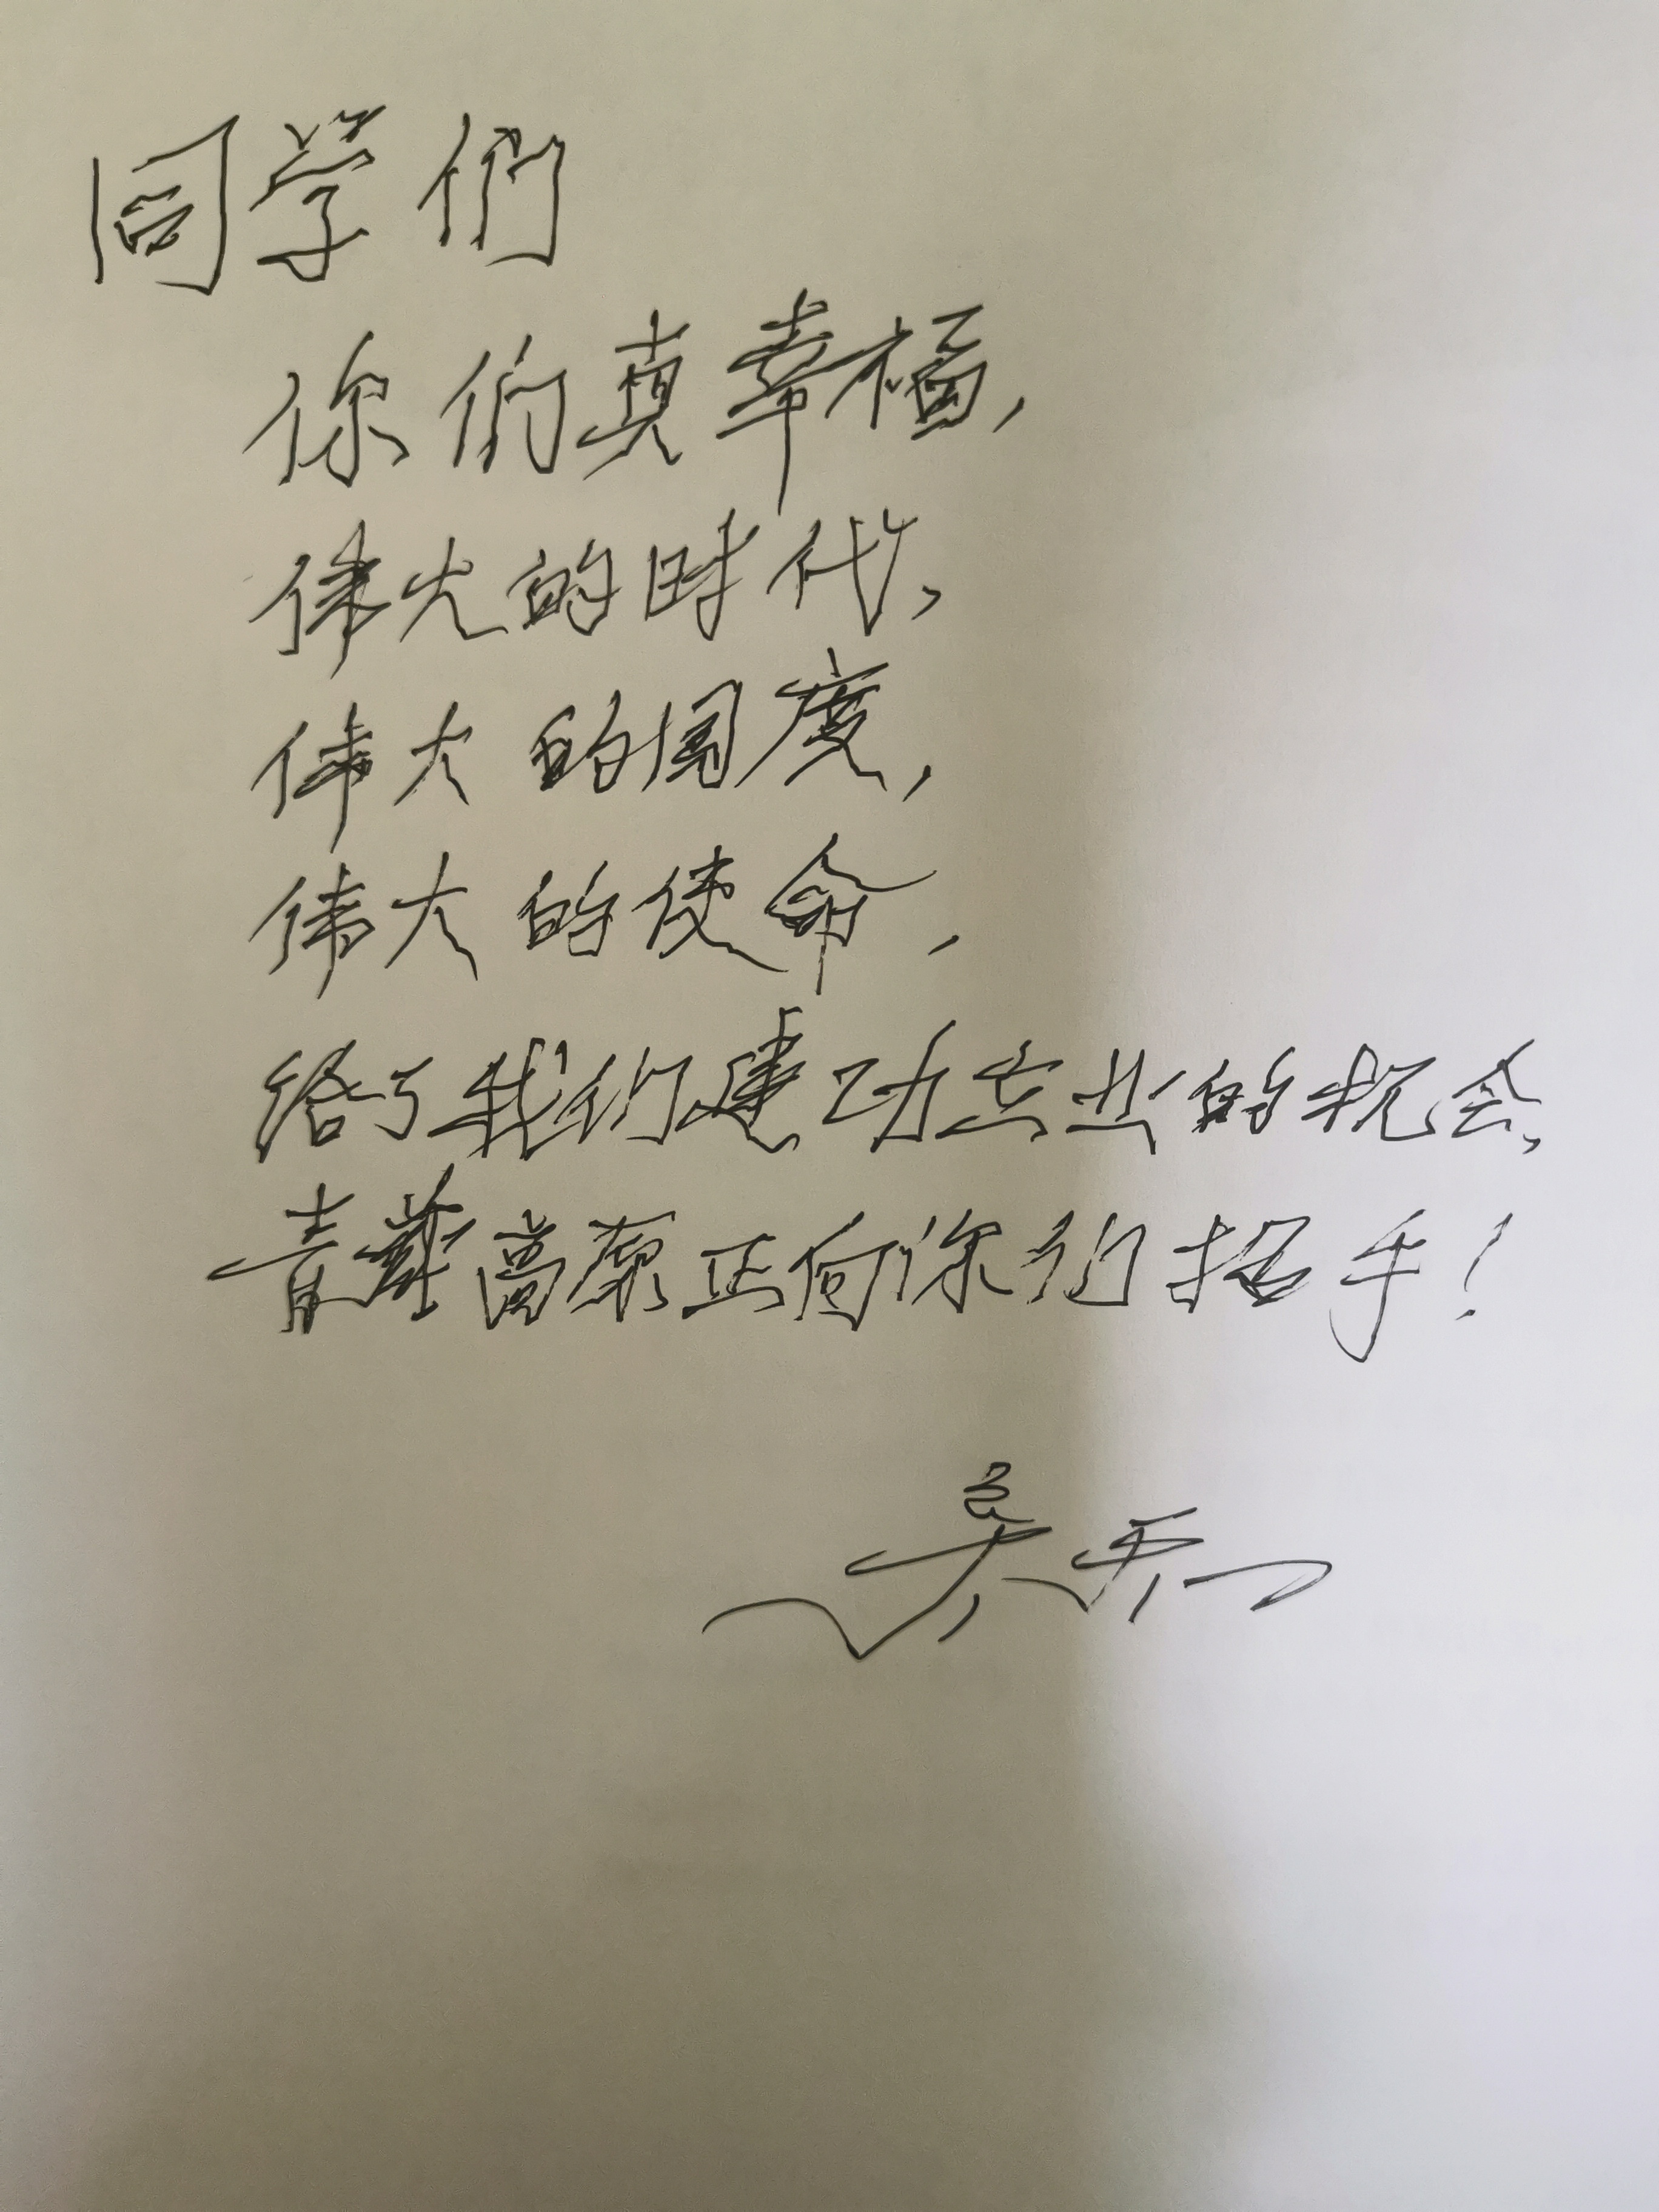 同学们
你们真幸福,
伟大的时代,
伟大的国度,
伟大的使命,
给了我们建功立业的机会,
青藏高原正向你们招手!